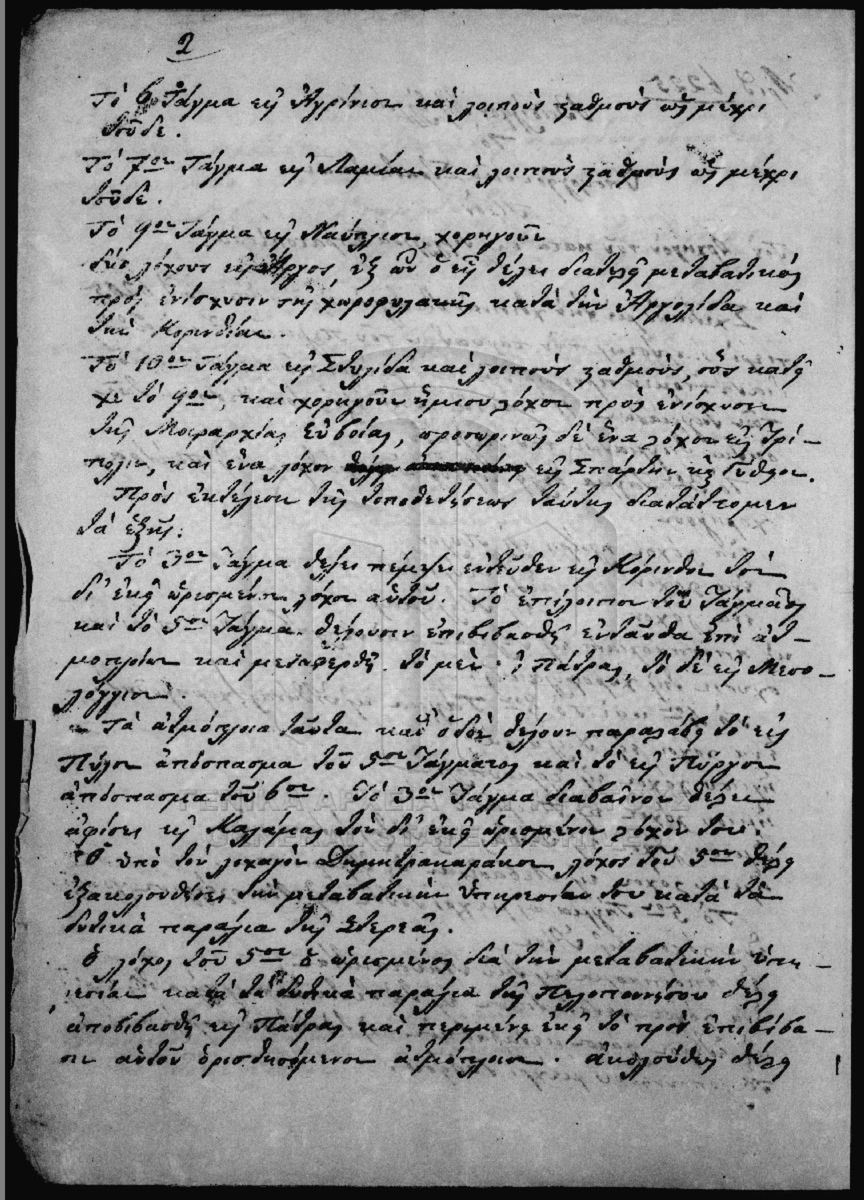 2
Τὸ 6ον Τάγμα εἰς Ἀγρίνιον καὶ λοιποὺς σταθμοὺς ὡς μέχρι
τοῦδε.
Τὸ 7ον Τάγμα εἰς Λαμίαν καὶ λοιποὺς σταθμοὺς ὡς μέχρι
τοῦδε.
Τὸ 9ον Τάγμα εἰς Ναύπλιον, χορηγοῦν
δύο λόχους εἰς Ἄργος, ἐξ ὧν ὁ εἷς θέλει διατελῇ μεταβατικὸς
πρὸς ἐνίσχυσιν τῆς χωροφυλακῆς κατὰ τὴν Ἀργολίδα καὶ
τὴν Κορινθίαν.
Τὸ 10ον Τάγμα εἰς Στυλίδα καὶ λοιποὺς σταθμοὺς, οὓς κατεῖ
χε τὸ 9ον, καὶ χορηγοῦν ἥμισυ λόχον πρὸς ἐνίσχυσιν
τῆς Μοιραρχίας Εὐβοίας, προσωρινῶς δὲ ἕνα λόχον εἰς Τρί-
πολιν, καὶ ἕνα λόχον εἰς Σπάρτην καὶ Γύθειον.
Πρὸς ἐκτέλεσιν τῆς τοποθετήσεως ταύτης διατάττομεν
τὰ ἑξῆς:
Τὸ 3ον Τάγμα θέλει πέμψει ἐντεῦθεν εἰς Κόρινθον τὸν
δι' ἐκεῖ ὡρισμένον λόχον αὐτοῦ. Τὸ ἐπίλοιπον τοῦ Τάγματος
καὶ τὸ 5ον Τάγμα θέλουσιν ἐπιβιβασθῆ ἐνταῦθα ἐπὶ ἀτ-
μοπλοίων καὶ μεταφερθῆ τὸ μὲν Πάτρας, τὸ δὲ εἰς Μεσο-
λόγγιον.
Τὰ ἀτμόπλοια ταῦτα καθ' ὁδὸν θέλουν παραλάβει τὸ εἰς
Πύλον ἀπόσπασμα τοῦ 5ου Τάγματος καὶ τὸ εἰς Πύργον
ἀπόσπασμα τοῦ 6ου. Τὸ 3ον Τάγμα διαβαῖνον θέλει
ἀφίσει εἰς Καλάμας τὸν δι' ἐκεῖ ὡρισμένον λόχον του.
Ὁ ὑπὸ τὸν λοχαγὸν Δημητρακαράκον λόχος τοῦ 5ου θέλει
ἐξακολουθήσει τὴν μεταβατικὴν ὑπηρεσίαν του κατὰ τὰ
δυτικὰ παράλια τῆς Στερεᾶς.
Ὁ λόχος τοῦ 5ου ὁ ὡρισμένος διὰ τὴν μεταβατικὴν ὑπη-
ρεσίαν κατὰ τὰ δυτικὰ παράλια τῆς Πελοποννήσου θέλει
ἀποβιβασθῆ εἰς Πάτρας καὶ περιμένει ἐκεῖ τὸ πρὸς ἐπιβίβα-
σιν αὐτοῦ ὁρισθησόμενον ἀτμόπλοιον. ἀκολούθως θέλει